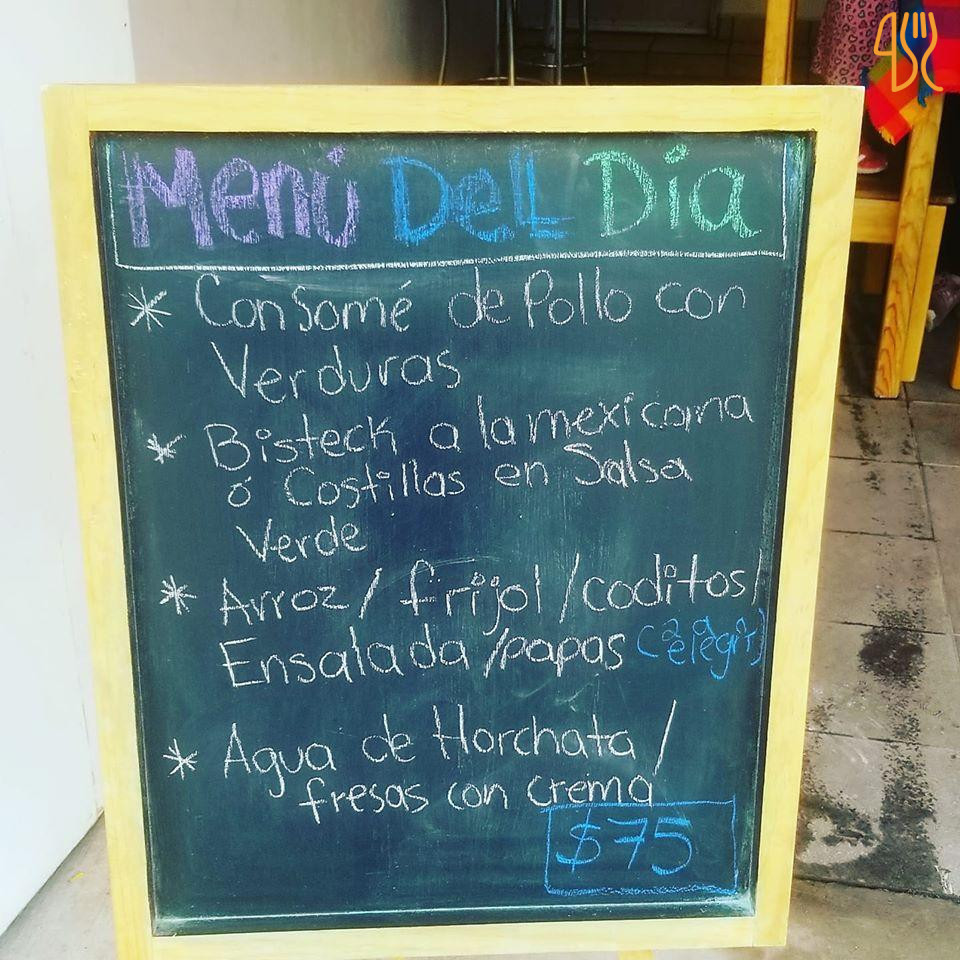 Menú DeL Día
* Consomé de Pollo con
Verduras
* Bisteck a la mexicana
ó Costillas en Salsa
Verde
* Arroz / frijol / coditos /
Ensalada / papas (2 a elegir)
* Agua de Horchata /
fresas con crema
$75